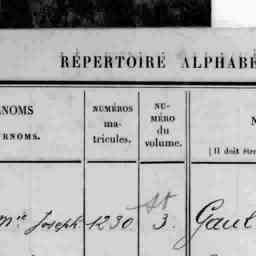 RÉPERTOIRE ALPHABÉ
NOMS
RNOMS.
NUMÉROS
ma-
tricules.
NU-
MÉRO
du
volume.
N
[Il doit être
Joseph 1230 3. Gaul